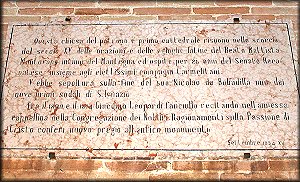 Questa chiesa del patrono e primo cattedrale risuonò nello scorcio
del secolo XV delle orazioni e delle veglie latine del Beato Battista
Mantovano intimo del Mantegna ed ospite per 25 anni del Senato Reca-
natese, insieme agli elettissimi compagni Carmelitani.
Ebbe sepoltura sulla fine del suo Nicolao da Bobadilla uno dei
primi sodali di S. Ignazio.
Fra il sogno e il vero Giacomo Leopardi fanciullo recitando nell'annessa
cappellina della Congregazione dei Nobili Ragionamenti sulla Passione di
Cristo conferì nuovo pregio all'antico monumento.
Settembre 1934